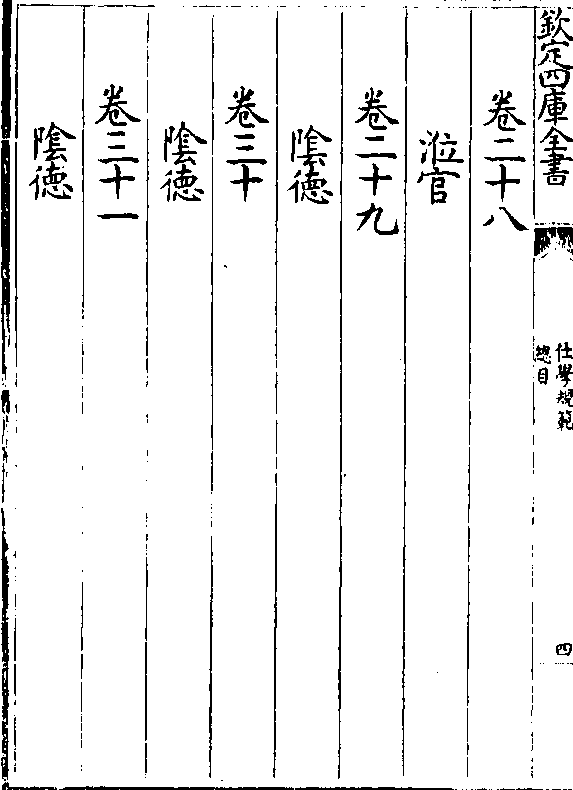 欽定四庫全書
仕學規範
總目
四
卷二十八
涖官
卷二十九
隂德
卷三十
隂德
卷三十一
隂德